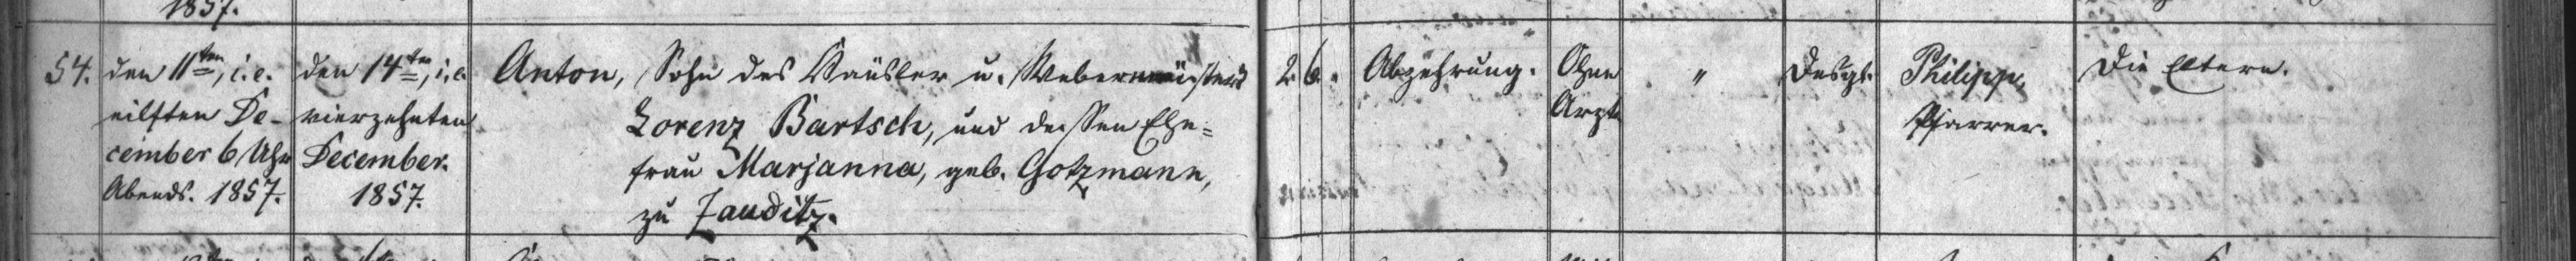 1857.
54.
den 11ten, i. e.
eilften De-
cember 6 Uhr
Abends. 1857.
den 14ten, i. e.
vierzehnten
December.
1857.
Anton, Sohn des Häusler u. Webermeisters
Lorenz Bartsch, und dessen Ehe=
frau Marjanna, geb. Gotzmann,
zu Zauditz.
2. 6. "
Abzehrung.
Ohne
Arzt.
"
Desgl.
Philipp,
Pfarrer.
Die Eltern.